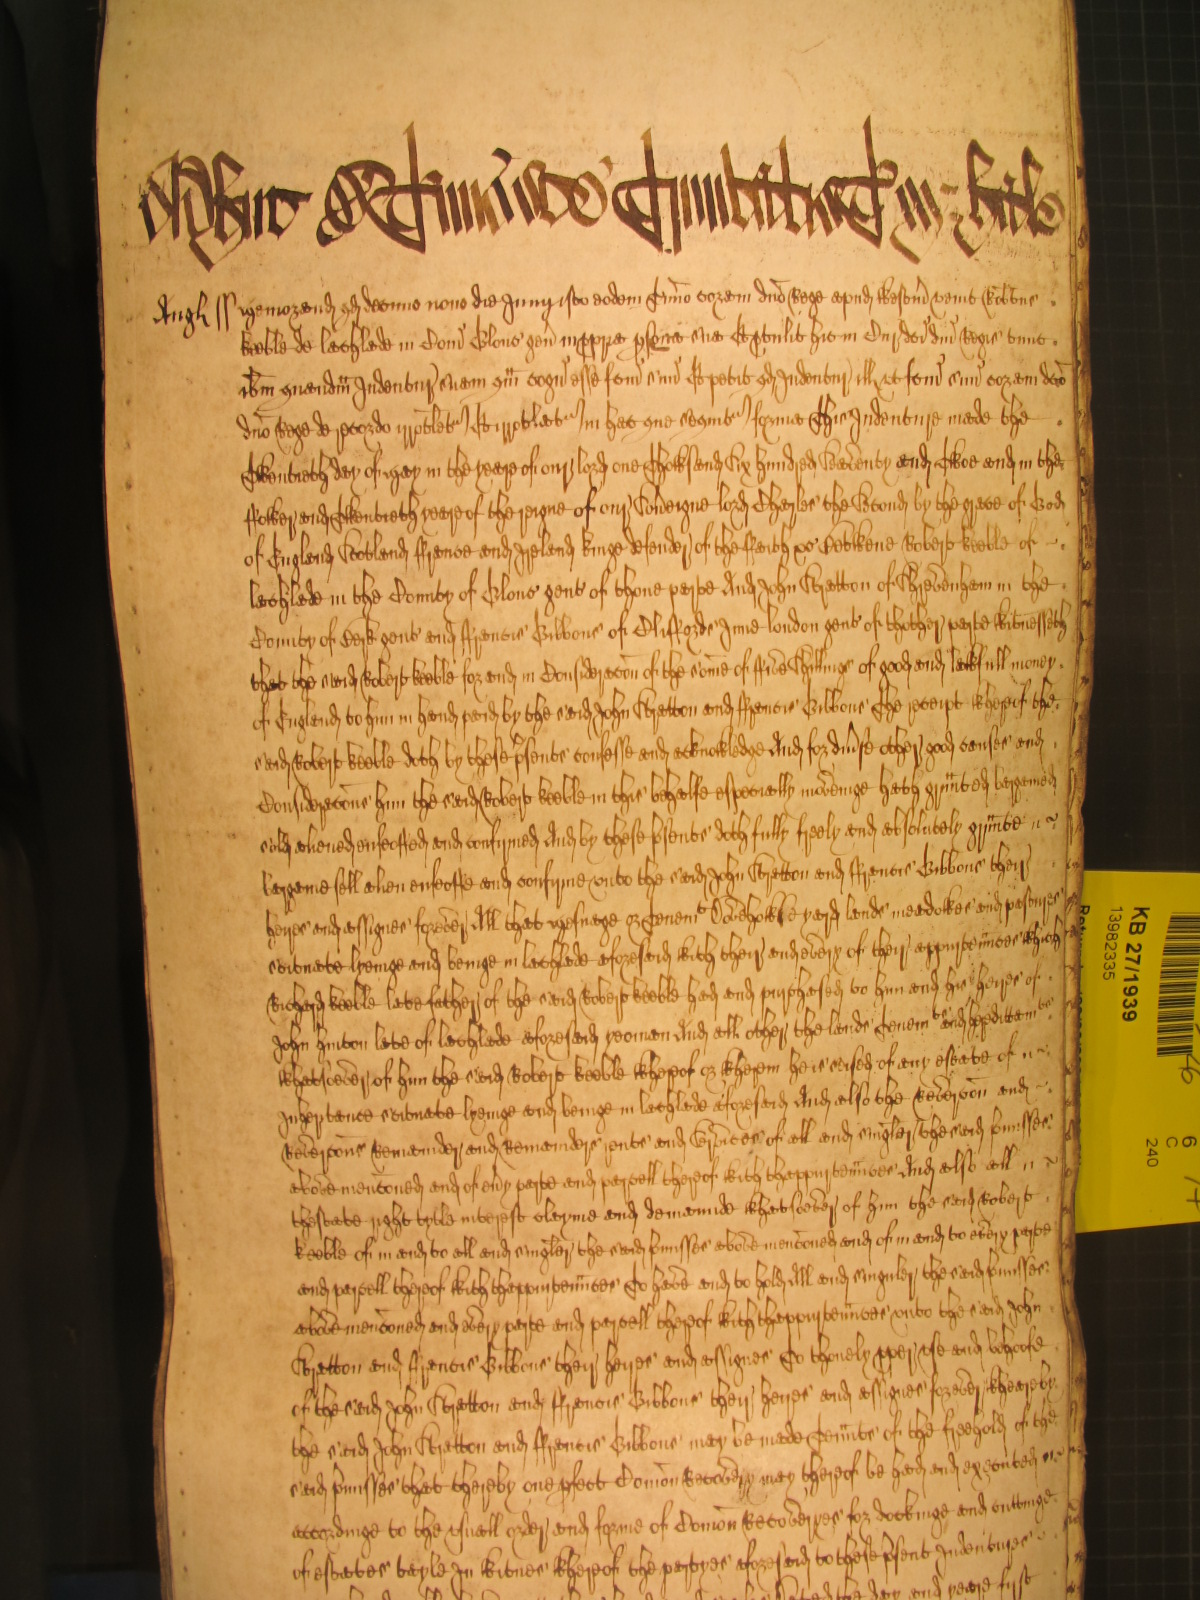 Angł ss Memorand qd decimo nono die Junij isto eodem Termino coram dno Rege apud Westm venit Robtus
Keeble de Lachlade in Com Glouc gen in ppria psona sua Et ptulit hic in Cur dci dni Regis tunc
ibm quandam Indentur suam quam cogn esse fcm suu Et petit qd Indentur ill ut fcm suu coram dco
dno Rege de recordo irrotlet Et irrotlat in hec que sequit forma This Indenture made the
Twentieth day of may in the yeare of our lord one Thowsand Six hundred Seaventy and Twoe and in the
ffower and Twentieth yeare of the reigne of our Soveigne lord Charles the Second by the grace of God
of England Scotland ffrance and Ireland kinge defender of the ffaith &c Betweene Robert Keeble of
Lachlade in the County of Glouc gent of thone parte And John Stratton of Shrevenham in the
County of Berk gent and ffrancis Gibbons of Cliffords Inne london gent of thother parte witnesseth
that the said Robert Keeble for and in Consideracon of the some of ffive Shillings of good and lawfull money
of England to him in hand paid by the said John Stratton and ffrancis Gibbons The receipt whereof the
said Robert Keeble doth by these psents confesse and acknowledge And for divse other good causes and
Consideracons him the said Robert Keeble in this behalfe especially moveinge hath graunted bargained
sold aliened enfeoffed and confirmed And by these psents doth fully freely and absolutely graunte
bargaine sell alien enfeoffe and confirme unto the said John Stratton and ffrancis Gibbons their
heires and assignes forever All that Messuage or Tenemt yard lands meadowes and pastures
scituate lyeinge and beinge in lachlade aforesaid with their and every of their appurtenncs which
Richard Keeble late father of the said Robert Keeble had and purchased to him and his heires of
John Hinton late of lachlade aforesaid yeoman And all other the lands Tenemts and hereditamts
whatsoever of him the said Robert Keeble whereof or wherein he is seised of any estate of
Inheritance scituate lyeinge and beinge in lachlade aforesaid And also the Revercon and
Revercons Remainder and Remainders rents and services of all and singler the said pmisses
above menconed and of evy parte and parcell thereof with thappurtenncs And also all
thestate right tytle interest clayme and demaunde whatsoever of him the said Robert
Keeble of in and to all and singler the said pmisses above menconed and of in and to every parte
and parcell thereof with thappurtenncs To have and to hold All and singuler the said pmisses
above menconed and every parte and parcell thereof with thappurtenncs unto the said John
Stratton and ffrancis Gibbons their heires and assignes To thonely pper use and behoofe
of the said John Stratton and ffrancis Gibbons their heires and assignes forever whereby
the said John Stratton and ffrancis Gibbons may be made Tenñts of the freehold of the
said pmisses that thereby one pfect Comon Recovery may thereof be had and executed
accordinge to the usuall order and forme of Comon Recoveryes for dockinge and cuttinge
of estates tayle In witnes whereof the partyes aforesaid to these psent Indentures
the day and yeare first
KB 27/1939
13982335
6
C
240